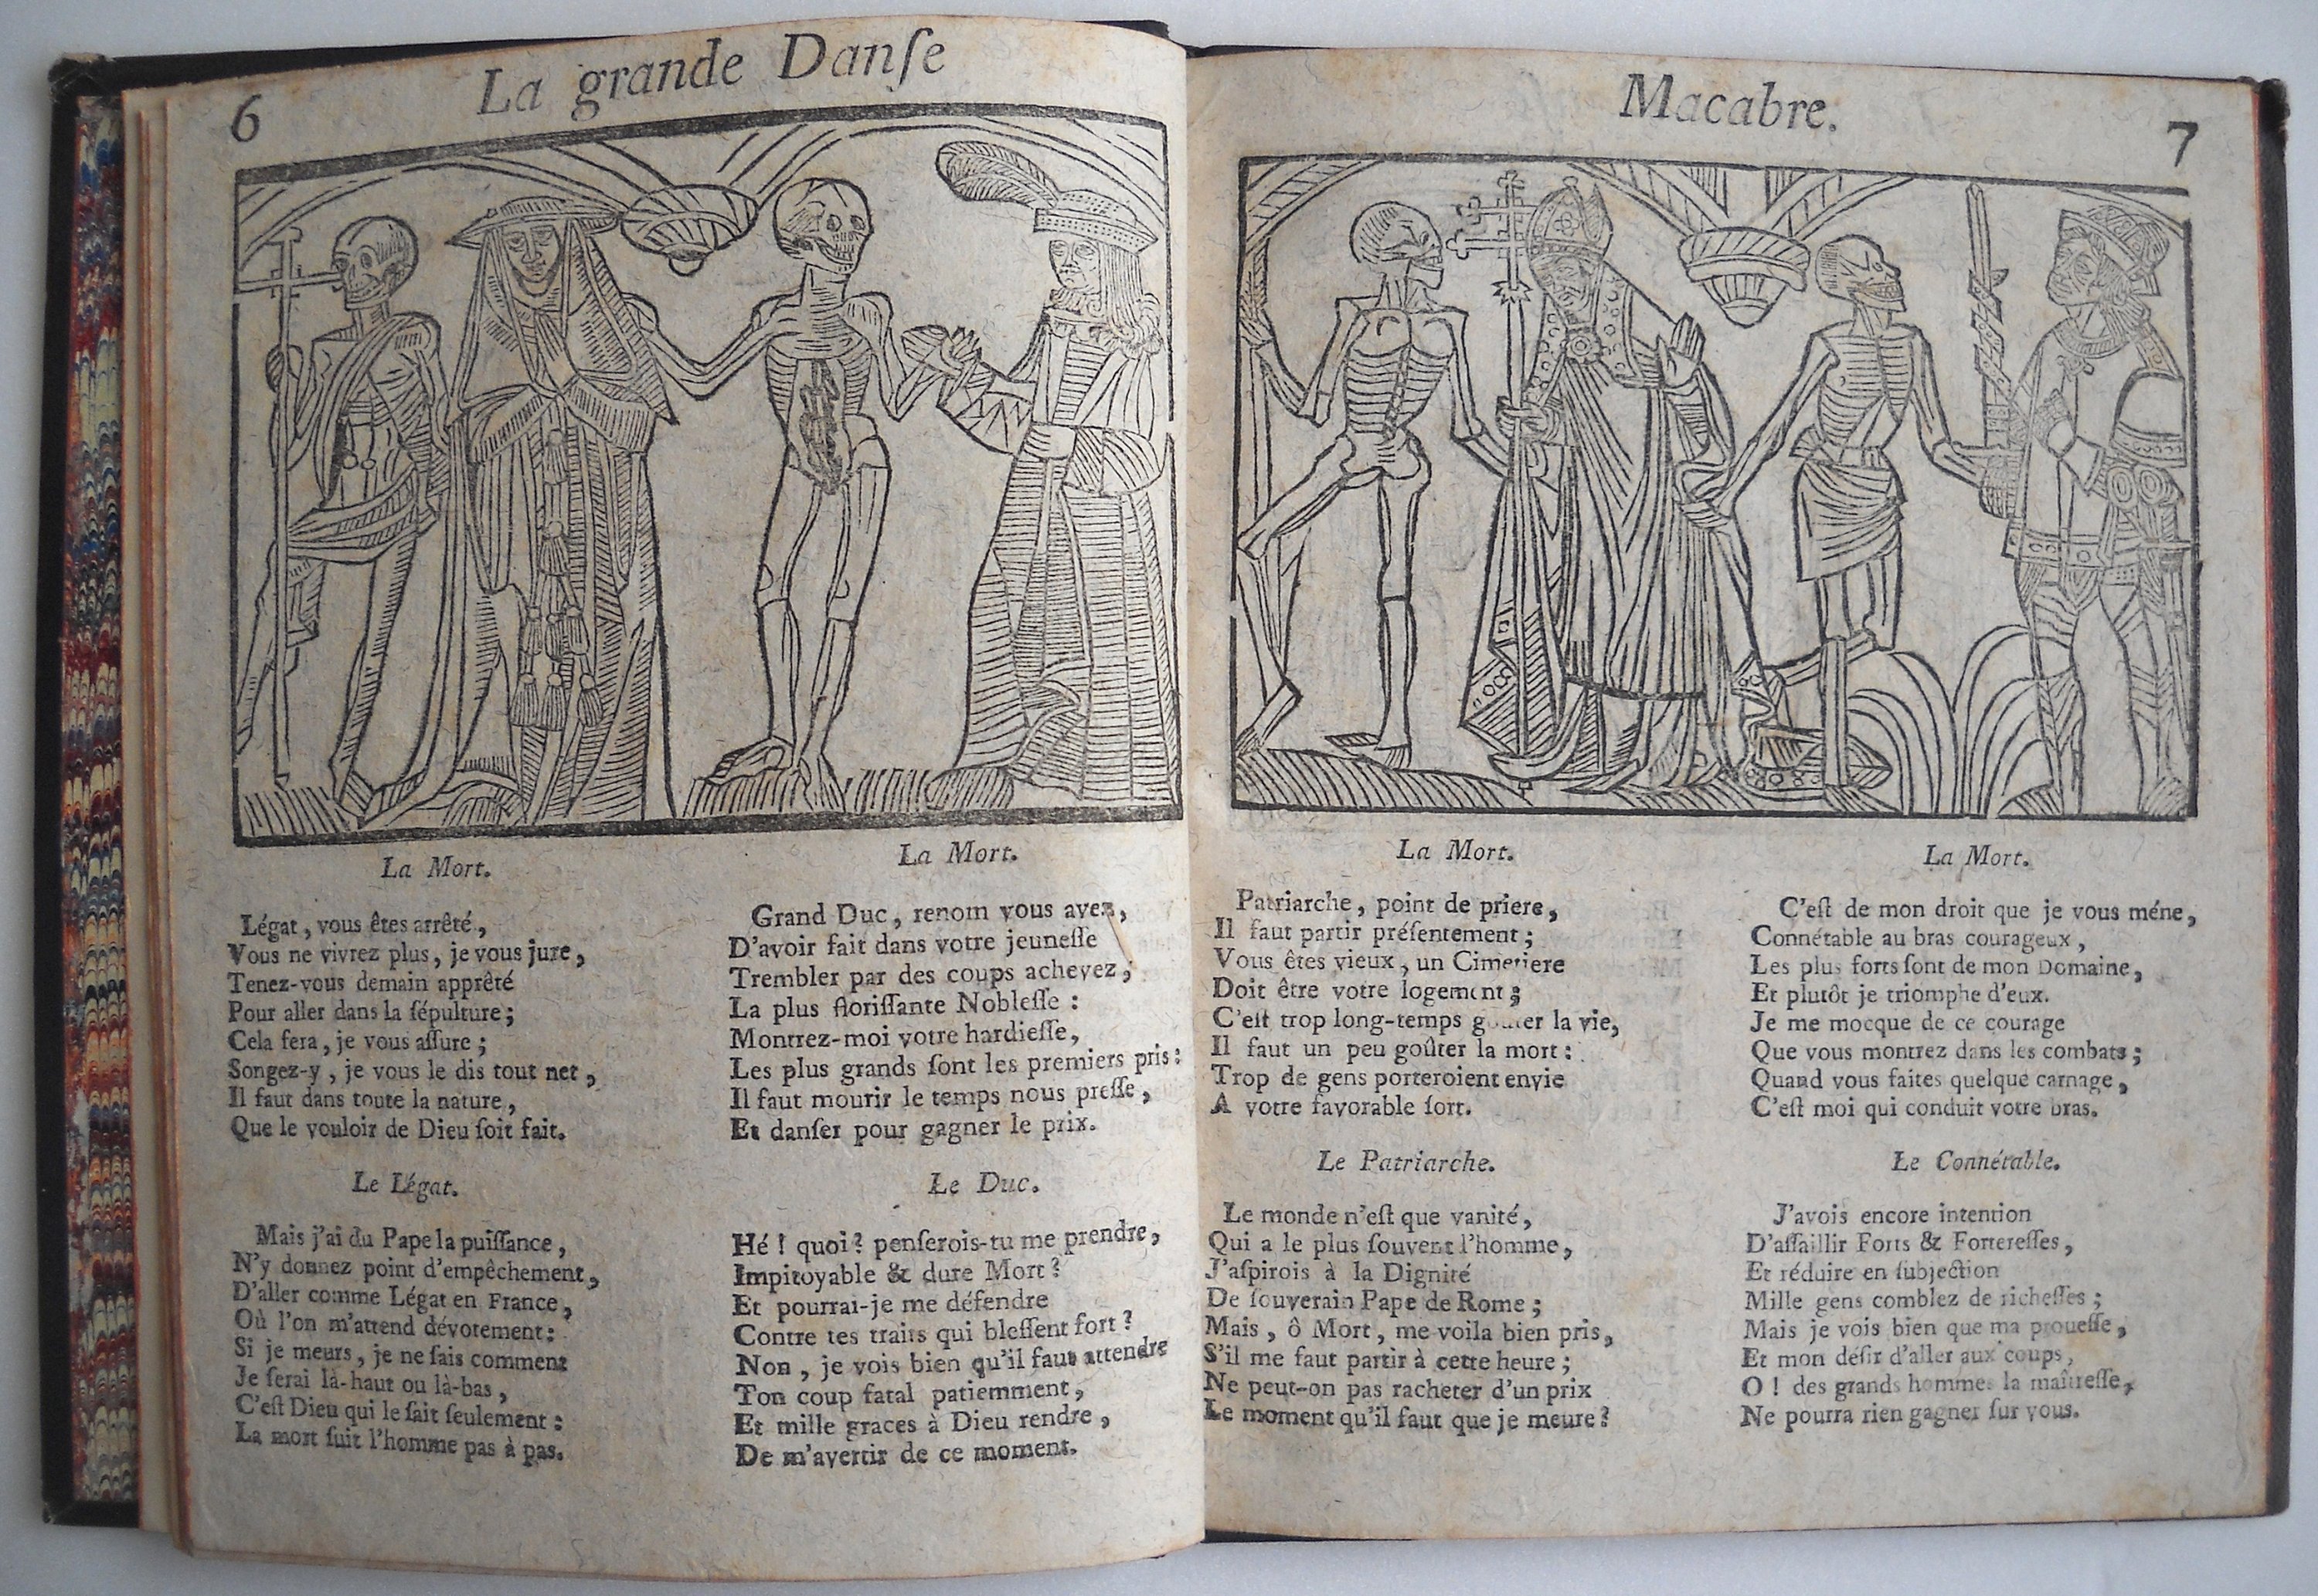 6
La grande Danſe
La Mort.
Légat, vous êtes arrêté,
Vous ne vivrez plus, je vous jure,
Tenez-vous demain apprêté
Pour aller dans la ſépulture;
Cela ſera, je vous aſſure;
Songez-y, je vous le dis tout net,
Il faut dans toute la nature,
Que le vouloir de Dieu ſoit fait.
Le Légat.
Mais j'ai du Pape la puiſſance,
N'y donnez point d'empêchement,
D'aller comme Légat en France,
Où l'on m'attend dévotement:
Si je meurs, je ne ſais comment
Je ſerai là-haut ou là-bas,
C'eſt Dieu qui le ſait ſeulement:
La mort ſuit l'homme pas à pas.
La Mort.
Grand Duc, renom vous avez,
D'avoir fait dans votre jeuneſſe
Trembler par des coups achevez,
La plus floriſſante Nobleſſe:
Montrez-moi votre hardieſſe,
Les plus grands ſont les premiers pris:
Il faut mourir le temps nous preſſe,
Et danſer pour gagner le prix.
Le Duc.
Hé! quoi? penſerois-tu me prendre,
Impitoyable & dure Mort?
Et pourrai-je me défendre
Contre tes traits qui bleſſent fort?
Non, je vois bien qu'il faut attendre
Ton coup fatal patiemment,
Et mille graces à Dieu rendre,
De m'avertir de ce moment.
Macabre.
7
La Mort.
Patriarche, point de priere,
Il faut partir préſentement;
Vous êtes vieux, un Cimetiere
Doit être votre logement;
C'eſt trop long-temps goûter la vie,
Il faut un peu goûter la mort:
Trop de gens porteroient envie
A votre favorable ſort.
Le Patriarche.
Le monde n'eſt que vanité,
Qui a le plus ſouvent l'homme,
J'aſpirois à la Dignité
De ſouverain Pape de Rome;
Mais, ô Mort, me voila bien pris,
S'il me faut partir à cette heure;
Ne peut-on pas racheter d'un prix
Le moment qu'il faut que je meure?
La Mort.
C'eſt de mon droit que je vous méne,
Connétable au bras courageux,
Les plus forts ſont de mon Domaine,
Et plutôt je triomphe d'eux.
Je me mocque de ce courage
Que vous montrez dans les combats;
Quand vous faites quelque carnage,
C'eſt moi qui conduit votre bras.
Le Connétable.
J'avois encore intention
D'aſſaillir Forts & Fortereſſes,
Et réduire en ſubjection
Mille gens comblez de richeſſes;
Mais je vois bien que ma proueſſe,
Et mon déſir d'aller aux coups,
O! des grands hommes la maîtreſſe,
Ne pourra rien gagner ſur vous.